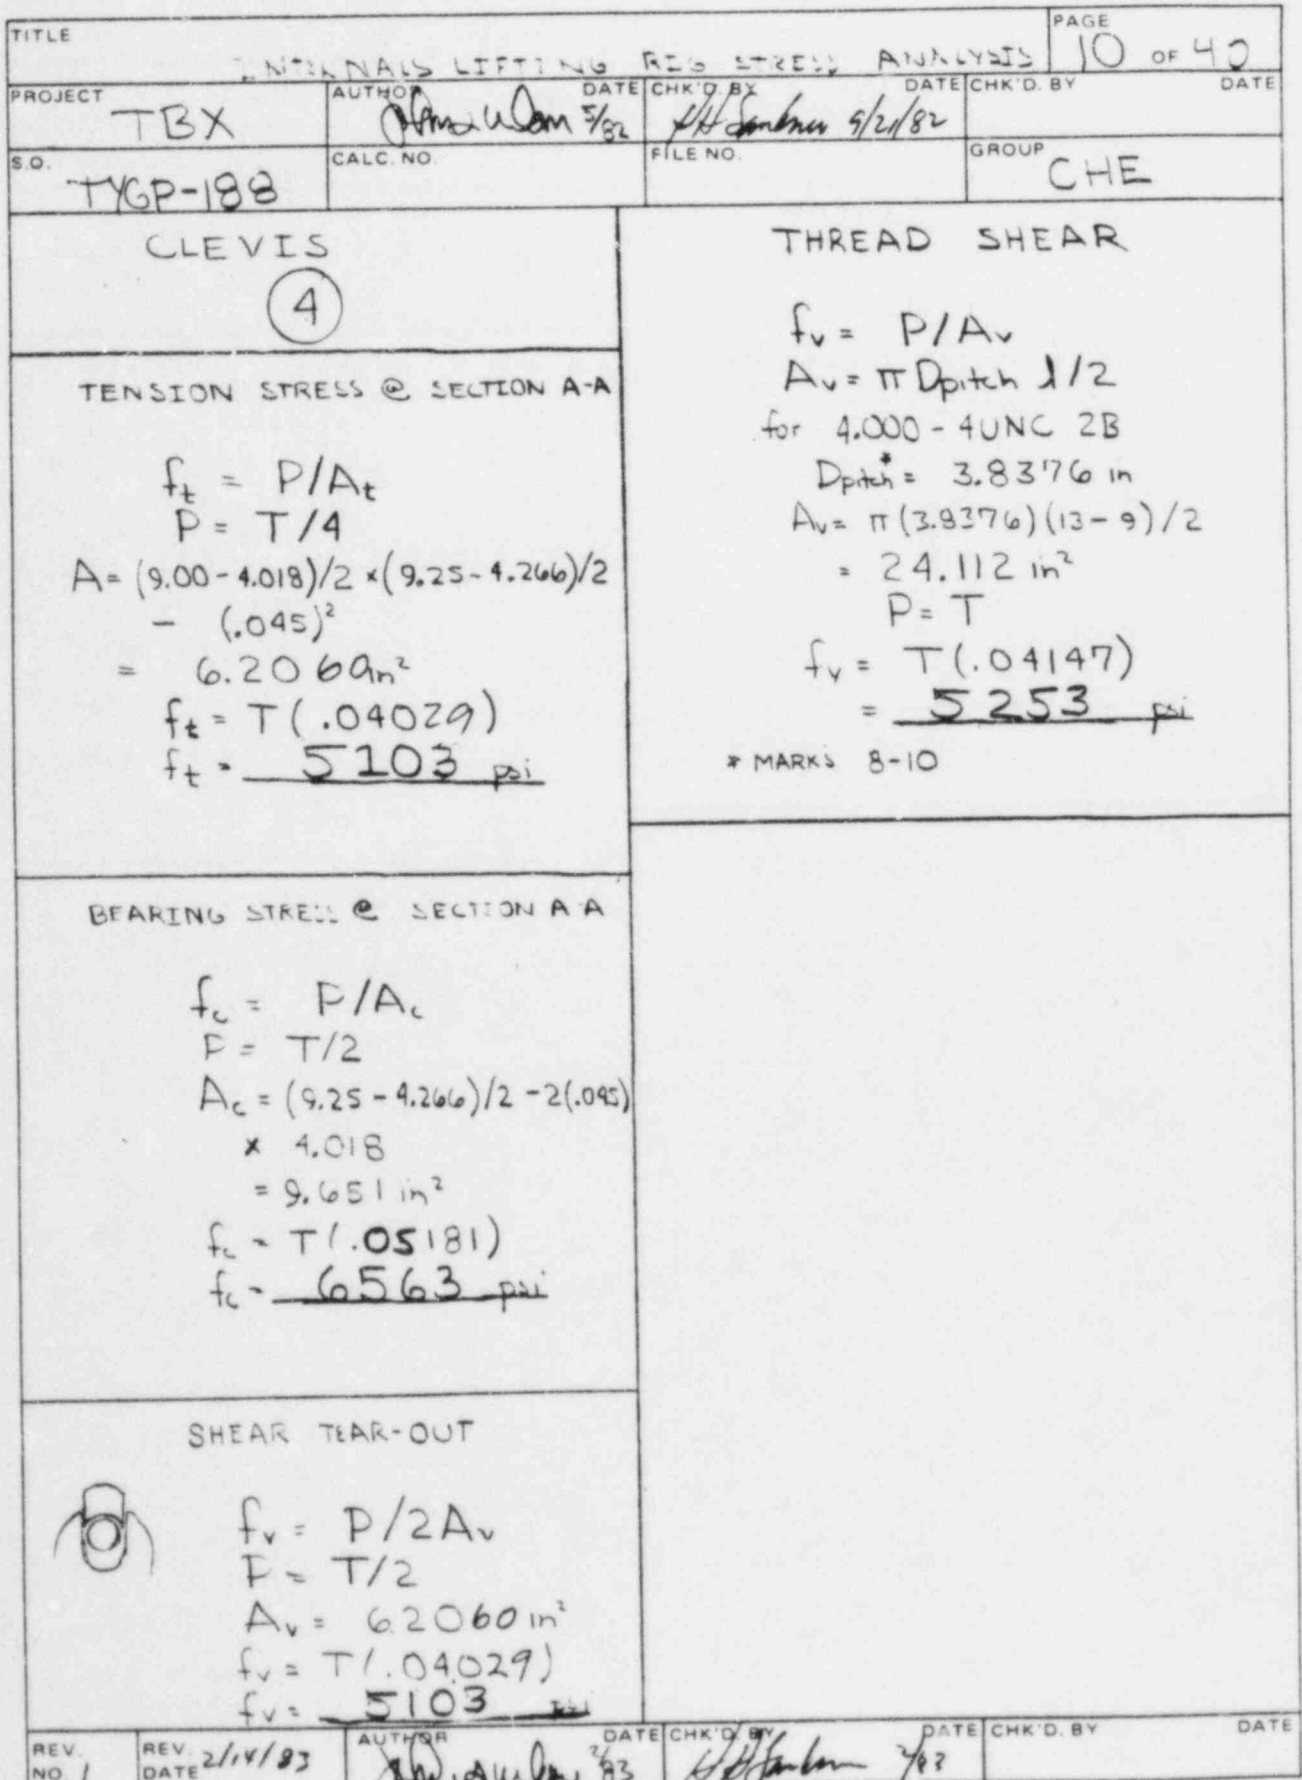 TITLE
INTERNALS LIFTING RIG STRESS ANALYSIS
PAGE
10 OF 40
PROJECT
TBX
AUTHOR DATE
5/82
CHK'D. BY DATE
9/21/82
CHK'D. BY DATE
S.O.
TYGP-188
CALC. NO.
FILE NO.
GROUP
CHE
CLEVIS
4
TENSION STRESS @ SECTION A-A
ft = P/At
P = T/4
A = (9.00-4.018)/2 x (9.25-4.266)/2
- (.045)²
= 6.2060in²
ft = T(.04029)
ft = 5103 psi
BEARING STRESS @ SECTION A-A
fc = P/Ac
P = T/2
Ac = (9.25-4.266)/2 -2(.045)
x 4.018
= 9.651 in²
fc = T(.05181)
fc = 6563 psi
SHEAR TEAR-OUT
fv = P/2Av
P = T/2
Av = 6.2060 in²
fv = T(.04029)
fv = 5103 psi
THREAD SHEAR
fv = P/Av
Av = π Dpitch l/2
for 4.000-4UNC 2B
Dpitch* = 3.8376 in
Av = π(3.8376)(13-9)/2
= 24.112 in²
P = T
fv = T(.04147)
= 5253 psi
* MARKS 8-10
REV. NO. 1
REV. DATE 2/14/83
AUTHOR DATE
2/83
CHK'D. BY DATE
2/83
CHK'D. BY DATE